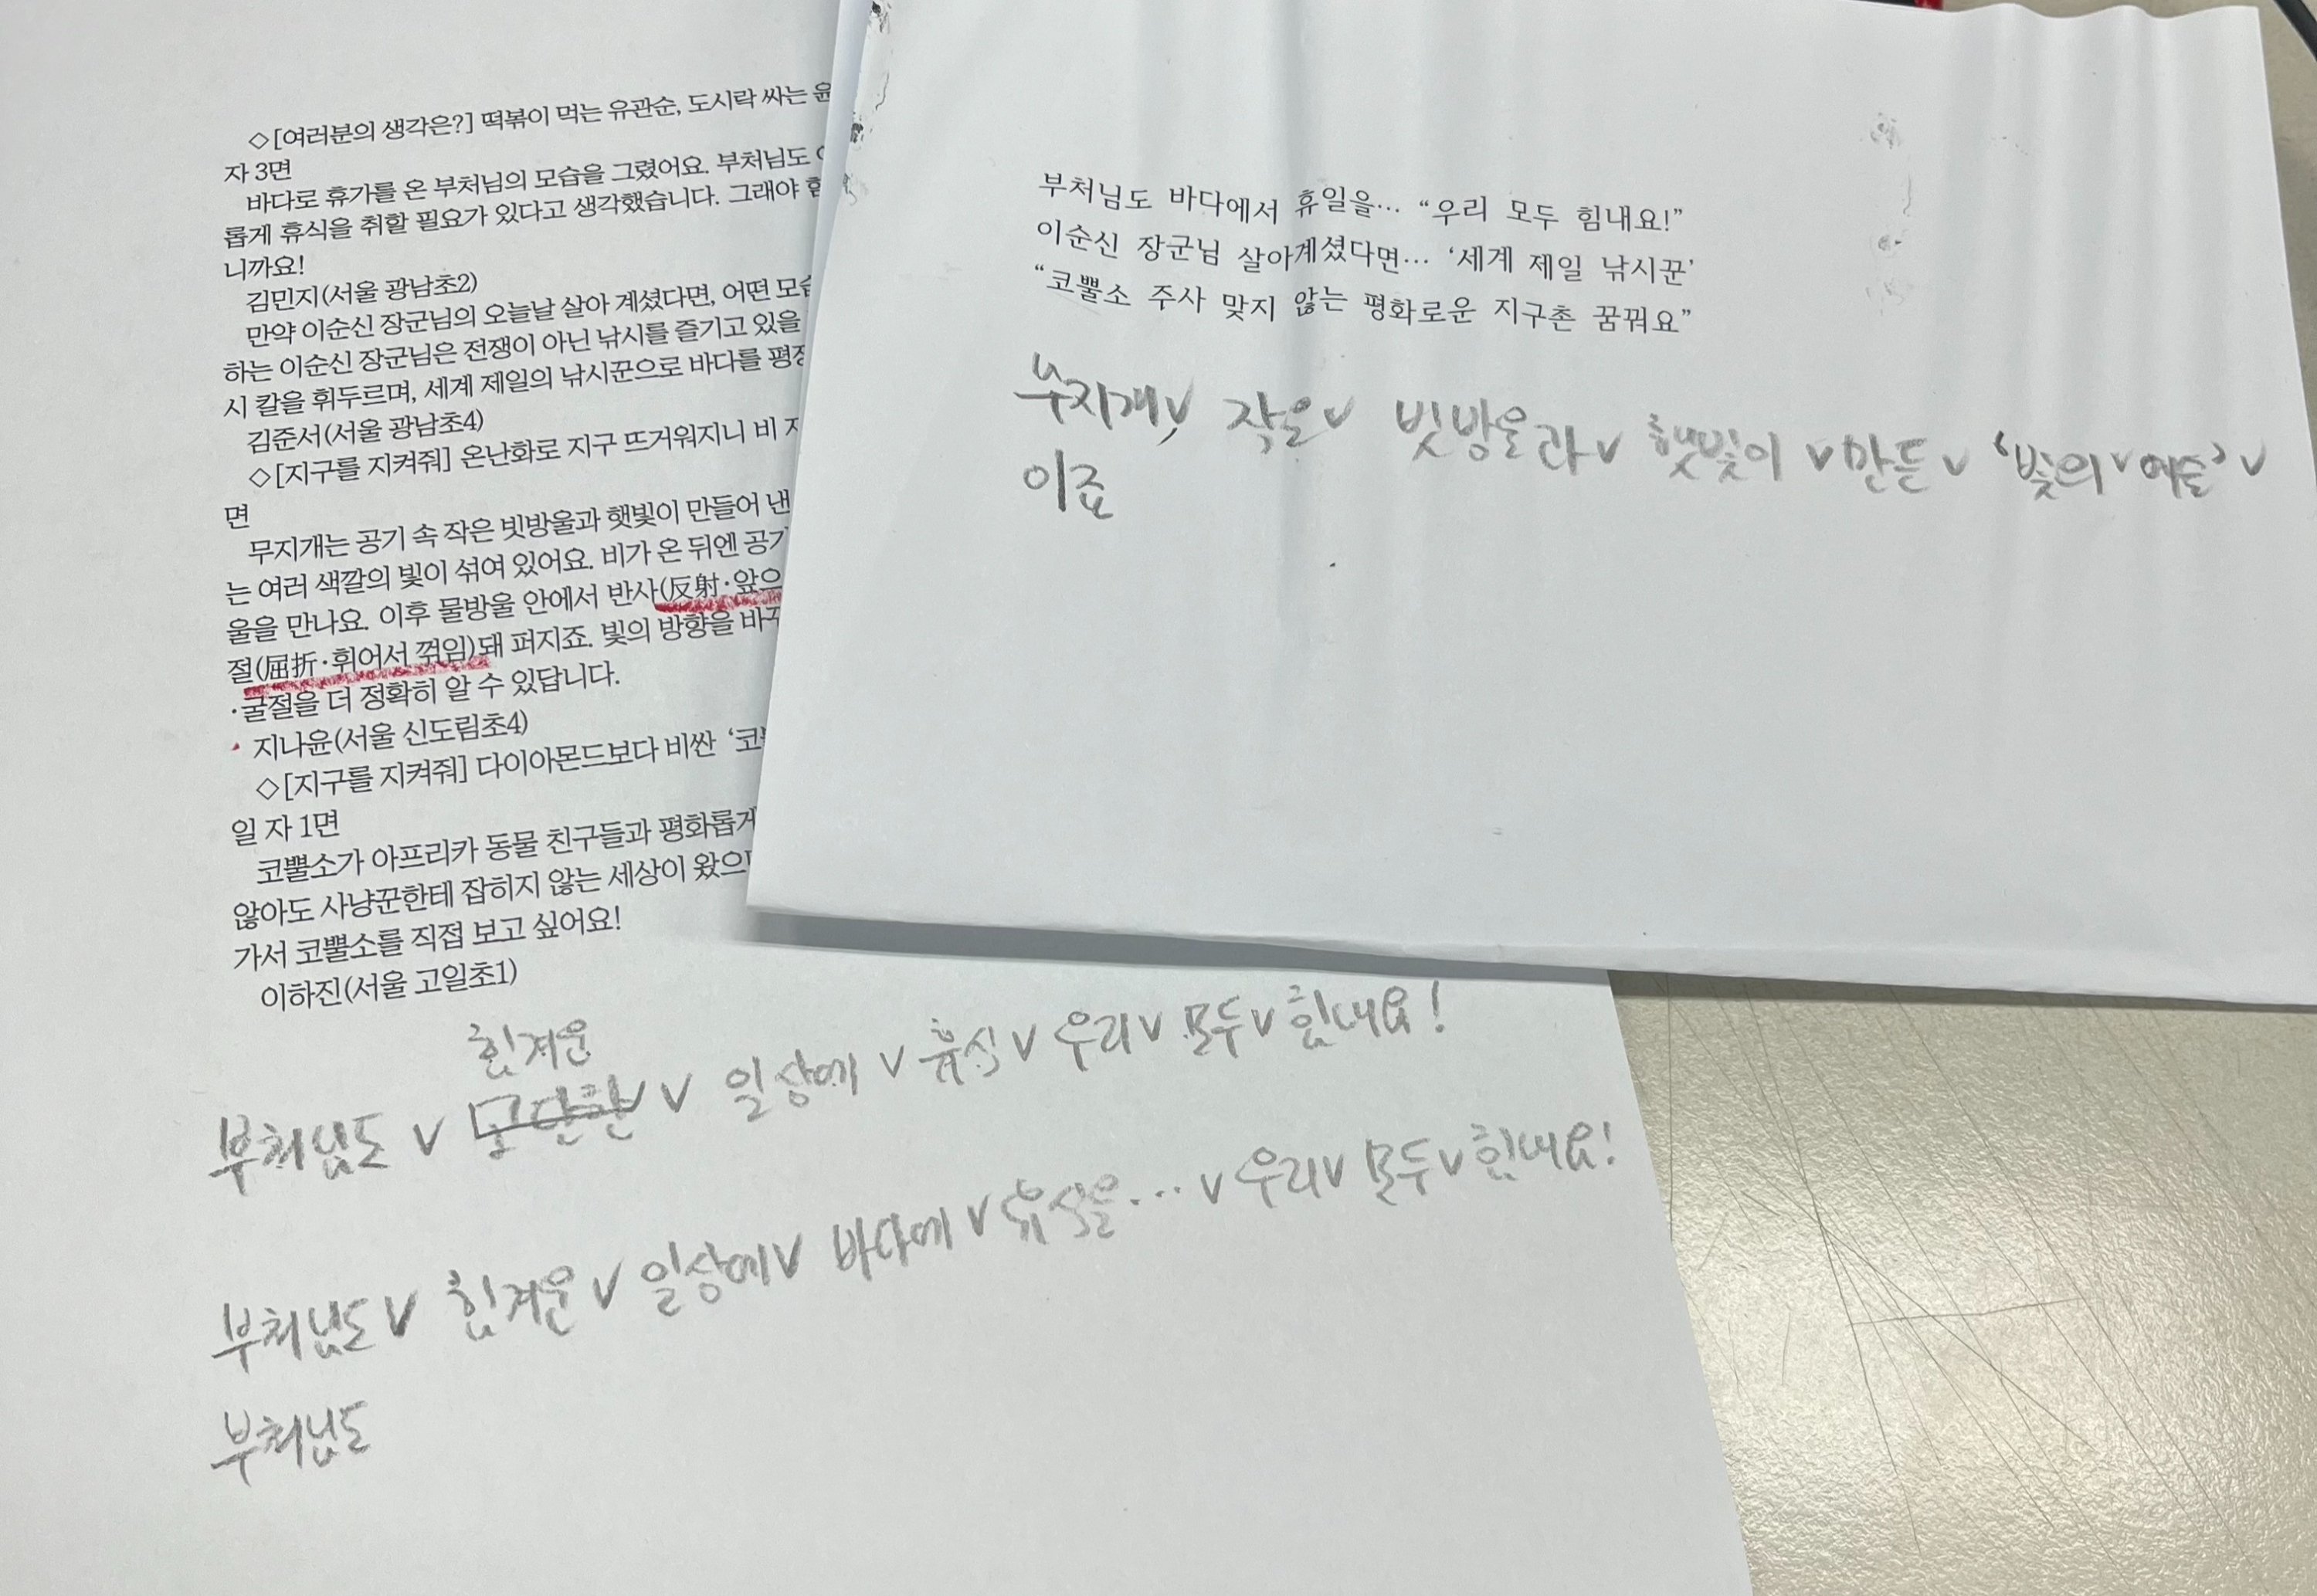 ◇[여러분의 생각은?] 떡볶이 먹는 유관순, 도시락 싸는 윤
자 3면
바다로 휴가를 온 부처님의 모습을 그렸어요. 부처님도
롭게 휴식을 취할 필요가 있다고 생각했습니다. 그래야 힘
니까요!
김민지(서울 광남초2)
만약 이순신 장군님의 오늘날 살아 계셨다면, 어떤 모습
하는 이순신 장군님은 전쟁이 아닌 낚시를 즐기고 있을
시 칼을 휘두르며, 세계 제일의 낚시꾼으로 바다를 평정
김준서(서울 광남초4)
◇[지구를 지켜줘] 온난화로 지구 뜨거워지니 비
면
무지개는 공기 속 작은 빗방울과 햇빛이 만들어 낸
는 여러 색깔의 빛이 섞여 있어요. 비가 온 뒤엔 공기
울을 만나요. 이후 물방울 안에서 반사(反射·앞으
절(屈折·휘어서 꺾임)돼 퍼지죠. 빛의 방향을 바꾸
·굴절을 더 정확히 알 수 있답니다.
지나윤(서울 신도림초4)
◇[지구를 지켜줘] 다이아몬드보다 비싼 ‘코뿔
일 자 1면
코뿔소가 아프리카 동물 친구들과 평화롭게
않아도 사냥꾼한테 잡히지 않는 세상이 왔으면
가서 코뿔소를 직접 보고 싶어요!
이하진(서울 고일초1)
힘겨운
부처님도 ∨ 고단한 ∨ 일상에 ∨ 휴식 ∨ 우리 ∨ 모두 ∨ 힘내요!
부처님도 ∨ 힘겨운 ∨ 일상에 ∨ 바다에 ∨ 휴식을… ∨ 우리 ∨ 모두 ∨ 힘내요!
부처님도
부처님도 바다에서 휴일을… “우리 모두 힘내요!”
이순신 장군님 살아계셨다면… ‘세계 제일 낚시꾼’
“코뿔소 주사 맞지 않는 평화로운 지구촌 꿈꿔요”
무지개, ∨ 작은 ∨ 빗방울과 ∨ 햇빛이 ∨ 만든 ∨ ‘빛의 ∨ 예술’ ∨
이죠